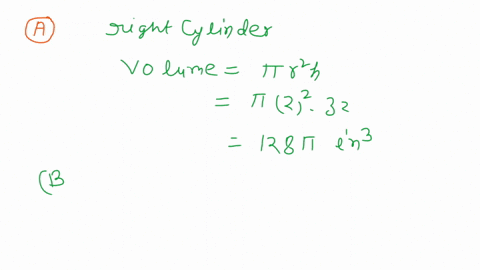 A right Cylinder
Volume = πr²h
= π(2)². 32
= 128π in³
(B